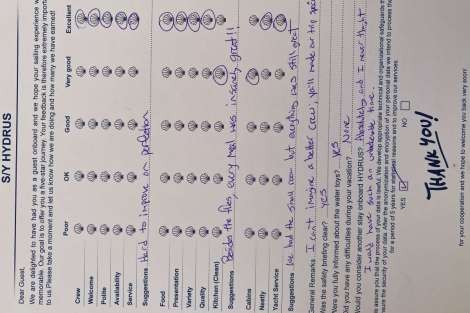 S/Y HYDRUS
Dear Guest,
We are delighted to have had you as a guest onboard and we hope your sailing experience w
memorable. Our goal is to offer you a five-star journey. Your feedback is therefore extremely import
to us Please take a moment and let us know how we are doing and how many we have earned!
Poor OK Good Very good Excellent
Crew
Welcome
Polite
Availability
Service
Suggestions Hard to improve on perfection
Food
Presentation
Variety
Quality
Kitchen (Clean)
Suggestions Besides the flies every meal was insanely great!!
Cabins
Neatly
Yacht Service
Suggestions We had the small room but everything was still great
General Remarks I can't imagine a better crew, you'll made our trip speci
Was the safety briefing clear? Yes
Were you fully informed about the water toys? Yes
Did you have any difficulties during your vacation? None
Would you consider another stay onboard HYDRUS? Absolutely and I never thought
I would have such an unbelievable time.
for a period of 5 years for statistical reasons and to improve our services.
YES NO
THANK YOU!
your cooperation and we hope to welcome you back very soon!